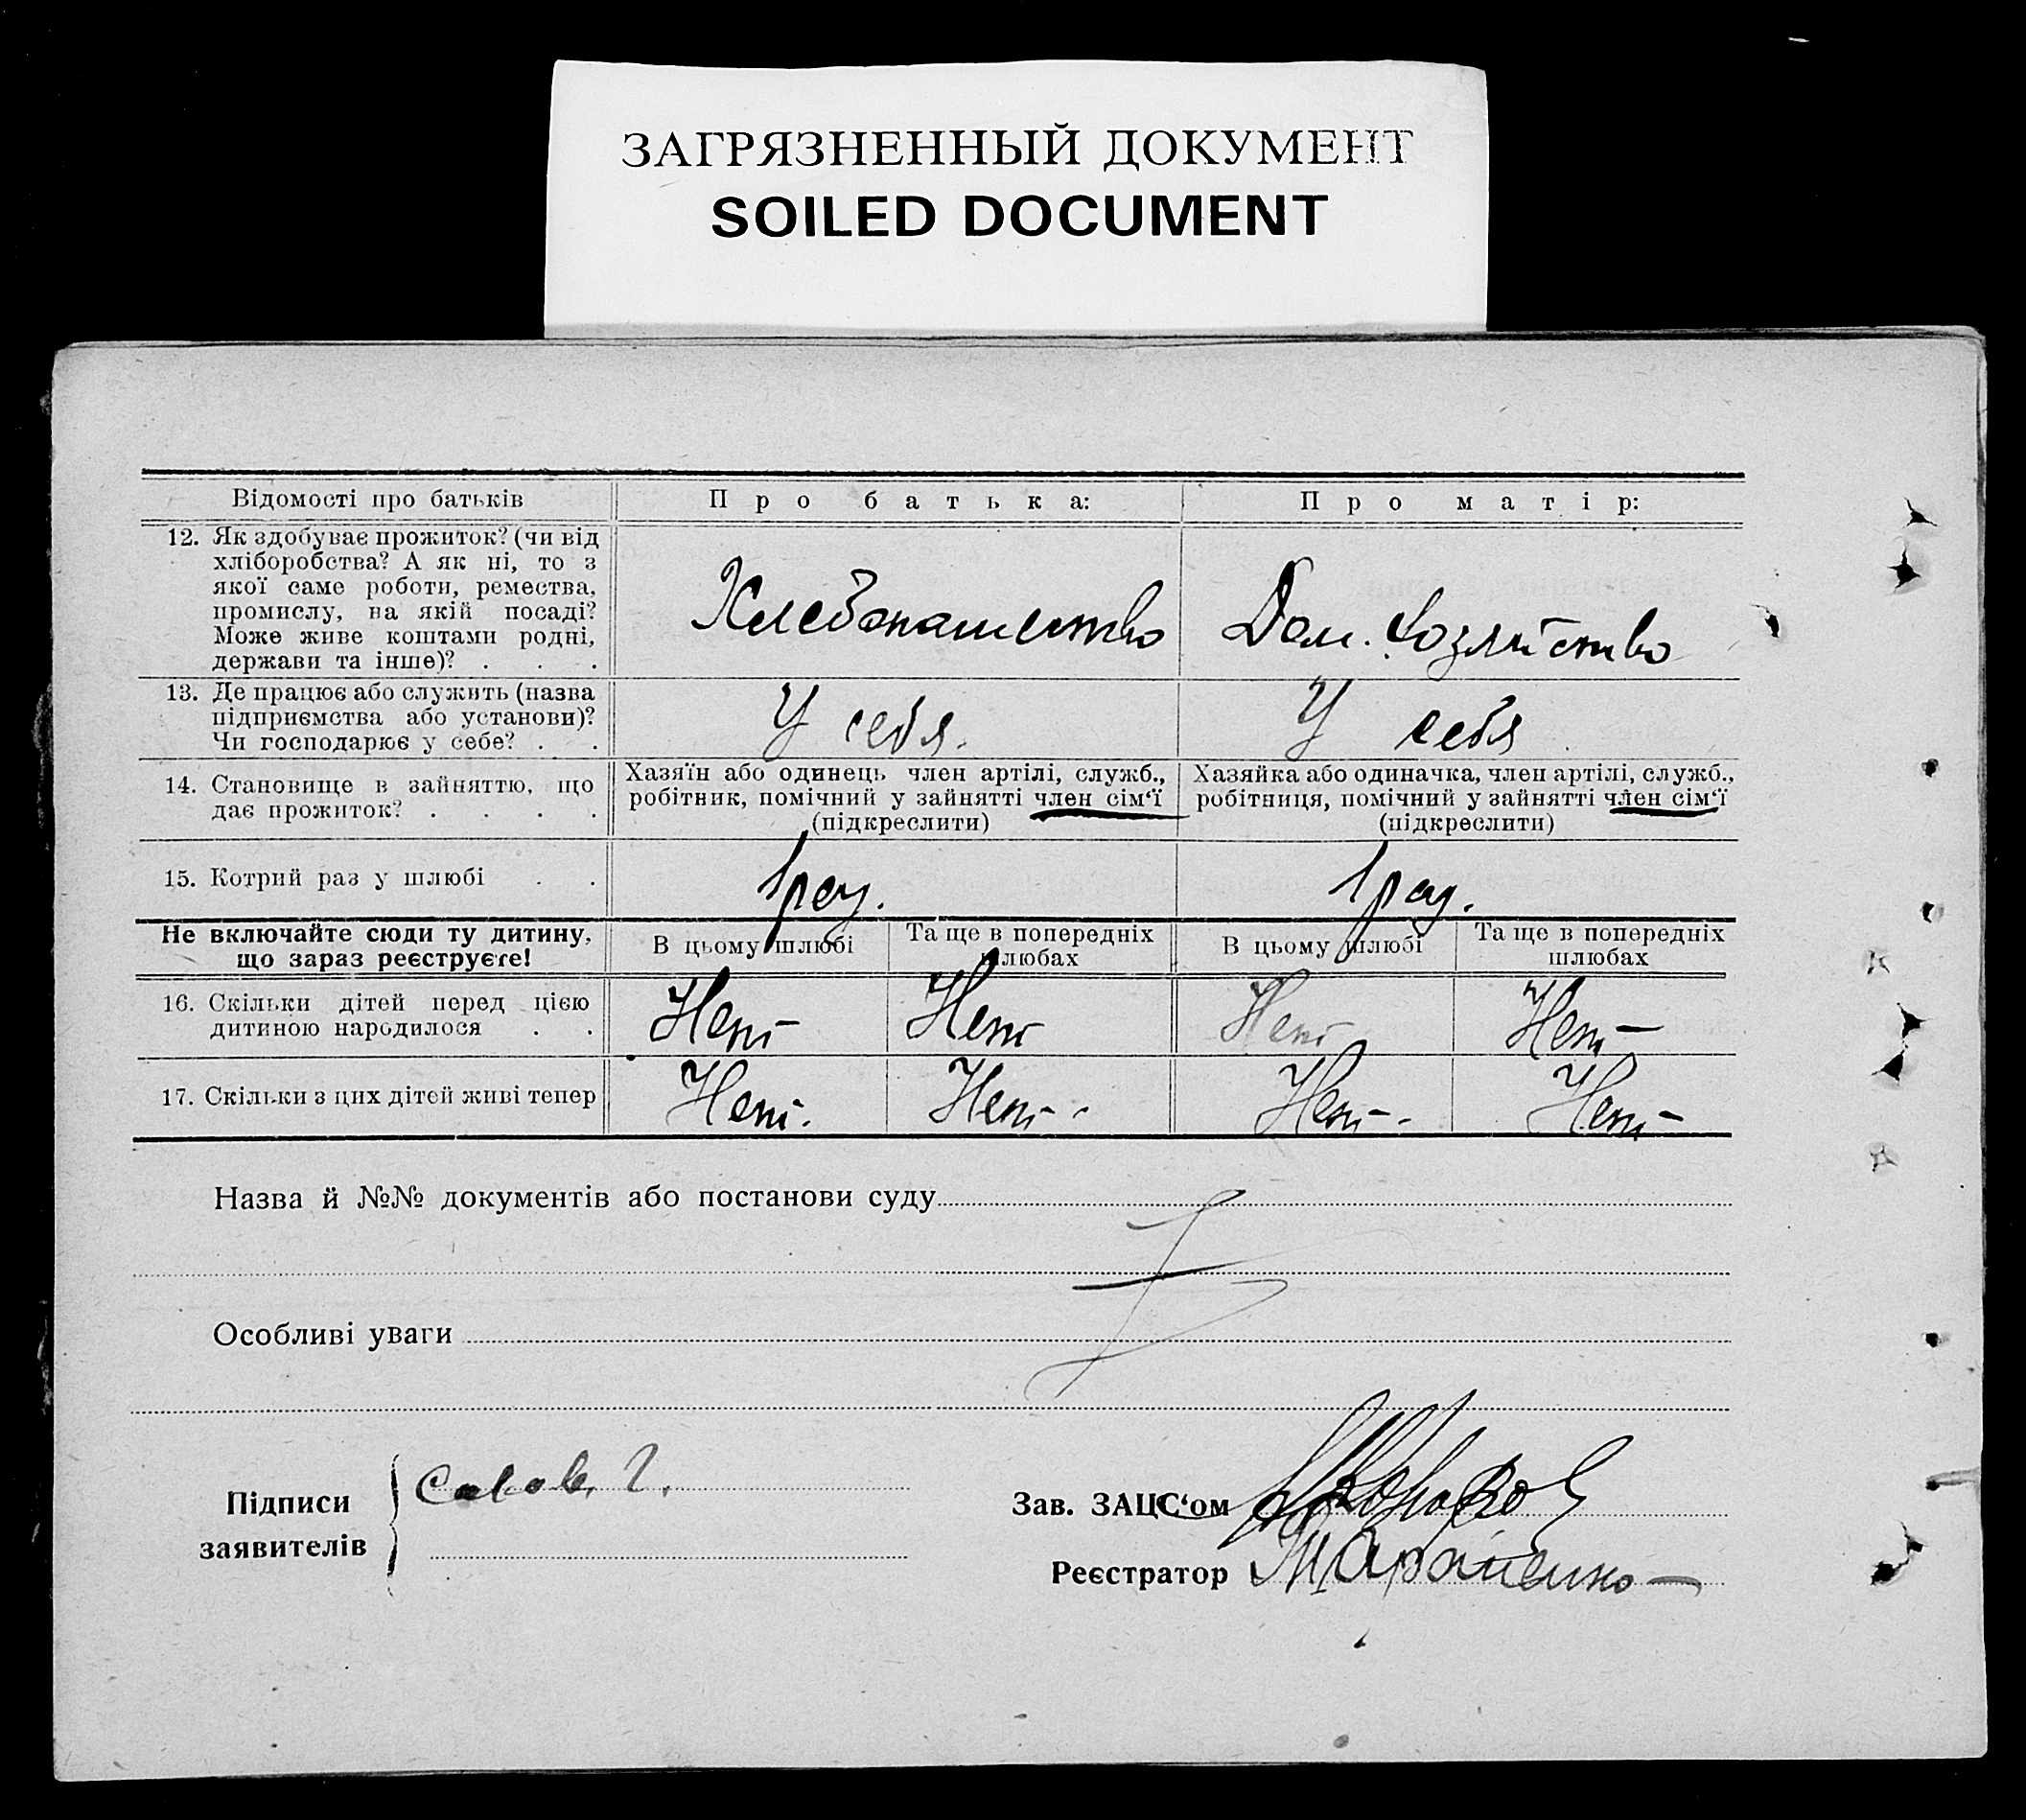 ЗАГРЯЗНЕННЫЙ ДОКУМЕНТ
SOILED DOCUMENT
Відомості про батьків
Про батька:
Про матір:
12. Як здобуває прожиток? (чи від
хліборобства? А як ні, то з
якої саме роботи, ремества,
промислу, на якій посаді?
Може живе коштами родні,
держави та інше)? . . .
Хлебопашество
Дом. Хозяйство
13. Де працює або служить (назва
підприємства або установи)?
Чи господарює у себе? . .
У себя.
У себя
14. Становище в зайняттю, що
дає прожиток? . . . .
Хазяїн або одинець член артілі, служб.,
робітник, помічний у зайнятті член сім‘ї
(підкреслити)
Хазяйка або одиначка, член артілі, служб.,
робітниця, помічний у зайнятті член сім‘ї
(підкреслити)
15. Котрий раз у шлюбі . .
1 раз.
1 раз.
Не включайте сюди ту дитину,
що зараз реєструєте!
В цьому шлюбі
Та ще в попередніх
шлюбах
В цьому шлюбі
Та ще в попередніх
шлюбах
16. Скільки дітей перед цією
дитиною народилося . .
Нет
Нет
Нет
Нет
17. Скільки з цих дітей живі тепер
Нет.
Нет
Нет
Нет
Назва й №№ документів або постанови суду
Особливі уваги
Підписи
заявителів
Зав. ЗАЦС‘ом
Реєстратор